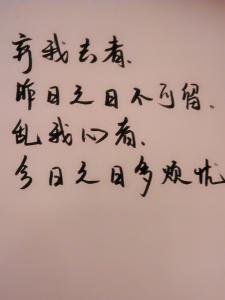 弃我去者、
昨日之日不可留、
乱我心者、
今日之日多烦忧